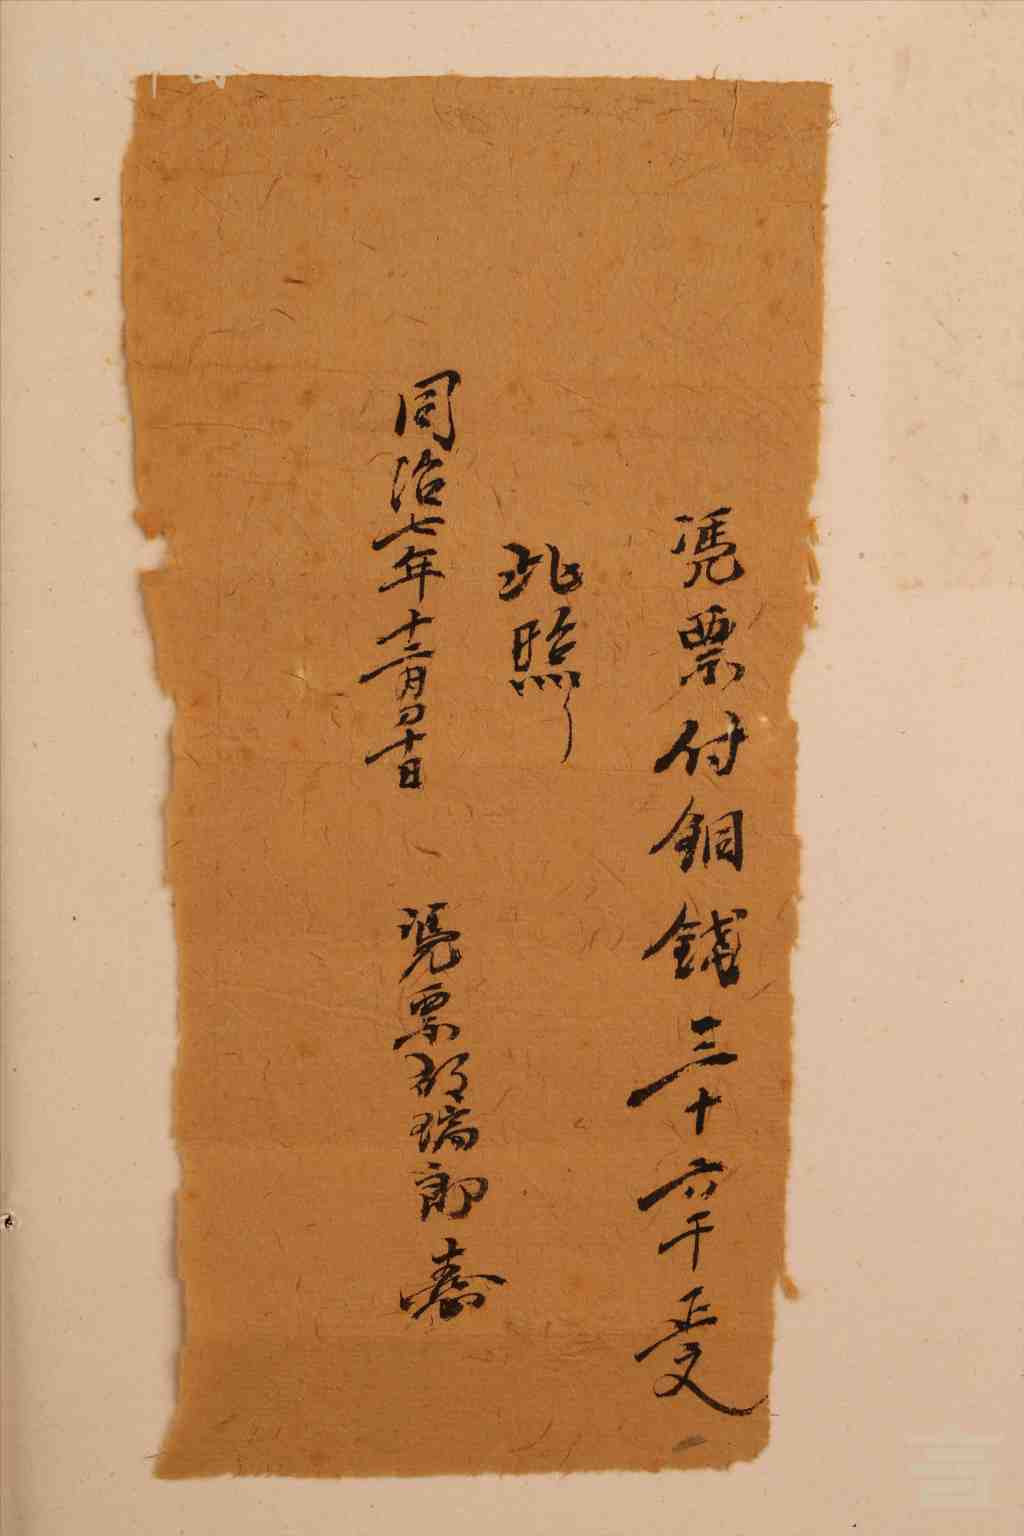 凴票付銅錢三十六千正文
此照
同治七年十二月初十日
凴票胡瑞郎